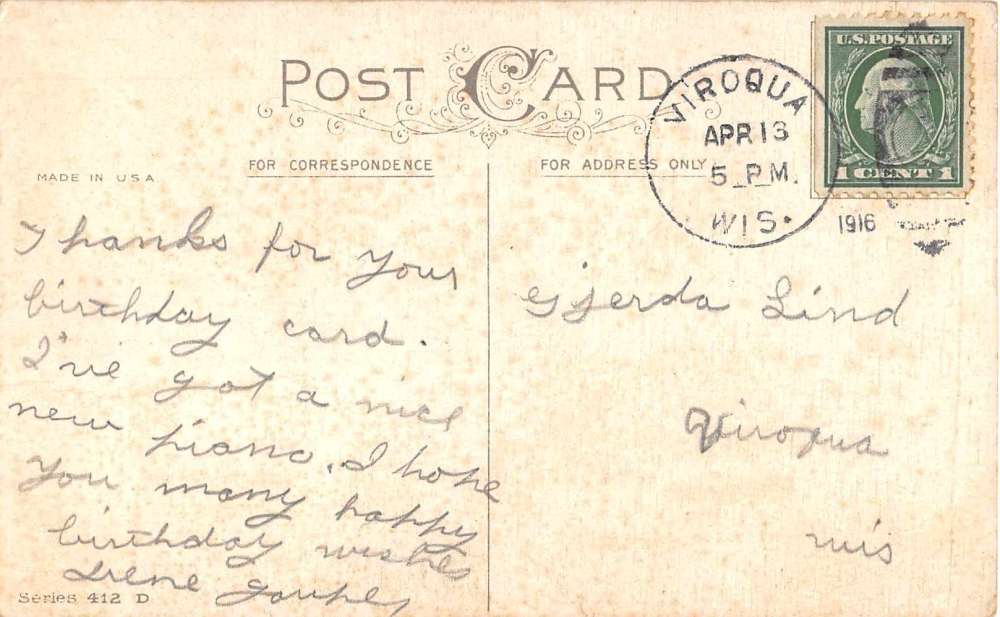 POST CARD
VIROQUA
APR 13
5 PM.
WIS.
1916
U.S. POSTAGE
1 CENT 1
FOR CORRESPONDENCE
FOR ADDRESS ONLY
MADE IN USA
Thanks for your
birthday card.
I've got a nice
new piano. I hope
you many happy
birthday wishes
Irene
Series 412 D
Gjerda Lind
Viroqua
Wis